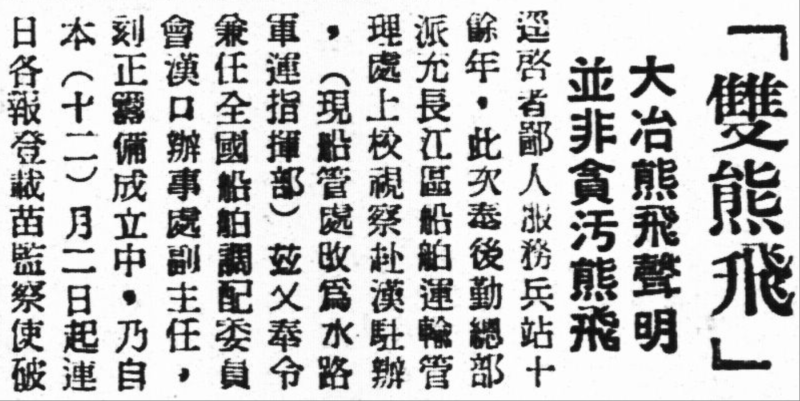 「雙熊飛」
大冶熊飛聲明
並非貪污熊飛
逕啓者鄙人服務兵站十
餘年，此次奉後勤總部
派充長江區船舶運輸管
理處上校視察赴漢駐辦
，（現船管處改爲水路
軍運指揮部）茲又奉令
兼任全國船舶調配委員
會漢口辦事處副主任，
刻正籌備成立中，乃自
本（十二）月二日起連
日各報登載苗監察使破